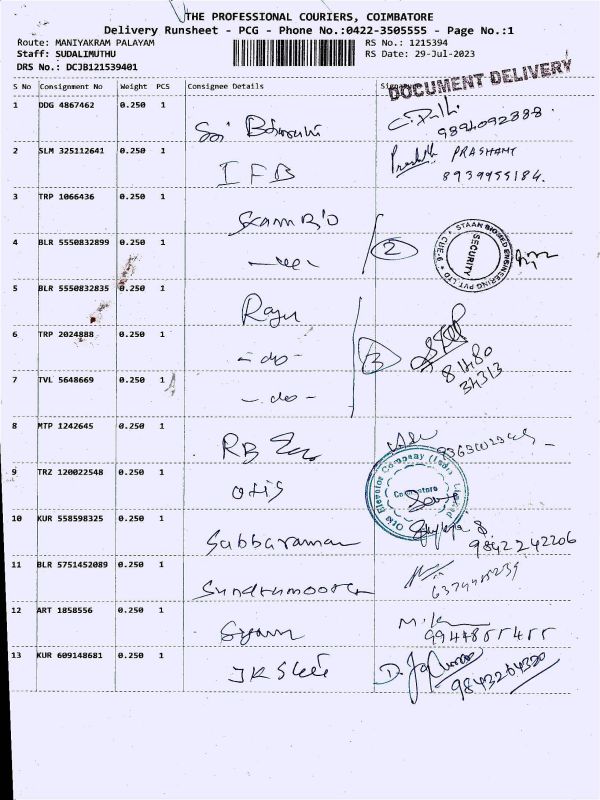 THE PROFESSIONAL COURIERS, COIMBATORE
Delivery Runsheet - PCG - Phone No.:0422-3505555 - Page No.:1
Route: MANIYAKRAM PALAYAM RS No.: 1215394
Staff: SUDALIMUTHU RS Date: 29-Jul-2023
DRS No.: DCJB121539401
DOCUMENT DELIVERY
S No Consignment No Weight PCS Consignee Details
1 DDG 4867462 0.250 1
9894092888
2 SLM 325112641 0.250 1 IFB PRASHANT
8939955184.
3 TRP 1066436 0.250 1
4 BLR 5550832899 0.250 1 2
STAAN BIOMED ENGINEERING PVT LTD * CBE-6 *
SECURITY
5 BLR 5550832835 0.250 1 Raju
6 TRP 2024888 0.250 1 - do - 3
81480
34313
7 TVL 5648669 0.250 1 - do -
8 MTP 1242645 0.250 1 RB
9 TRZ 120022548 0.250 1 otis
Otis Elevator Company (India) Limited
Coimbatore
10 KUR 558598325 0.250 1 Subbaraman
9842242206
11 BLR 5751452089 0.250 1
12 ART 1858556 0.250 1 Syam
9944855455
13 KUR 609148681 0.250 1 JK
9843264320